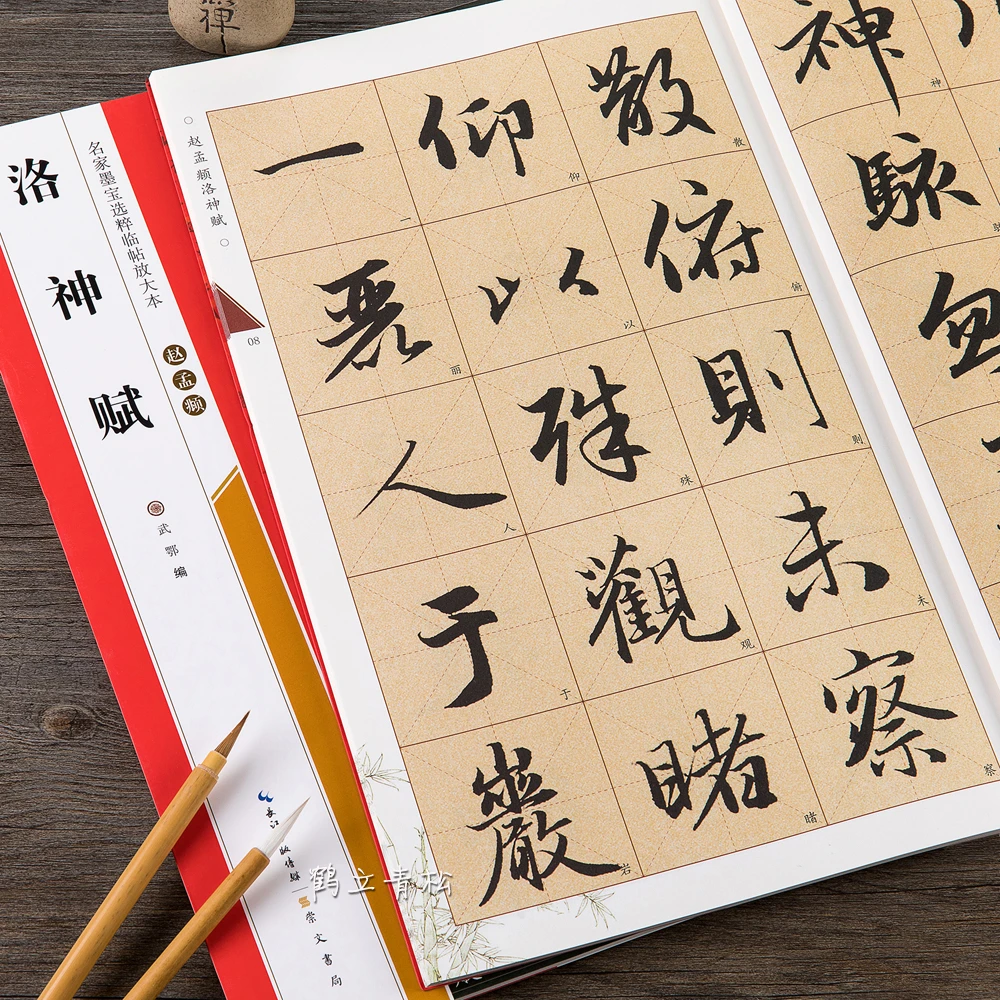 禅
洛神赋
名家墨宝选粹临帖放大本
赵孟頫
武鄂 编
长江出版传媒
崇文书局
赵孟頫洛神赋
08
神
駭
忽
散
俯
則
未
察
仰
以
殊
觀
睹
一
麗
人
于
巖
神
散
俯
则
未
察
仰
以
殊
观
睹
一
丽
人
于
岩
鹤立青松